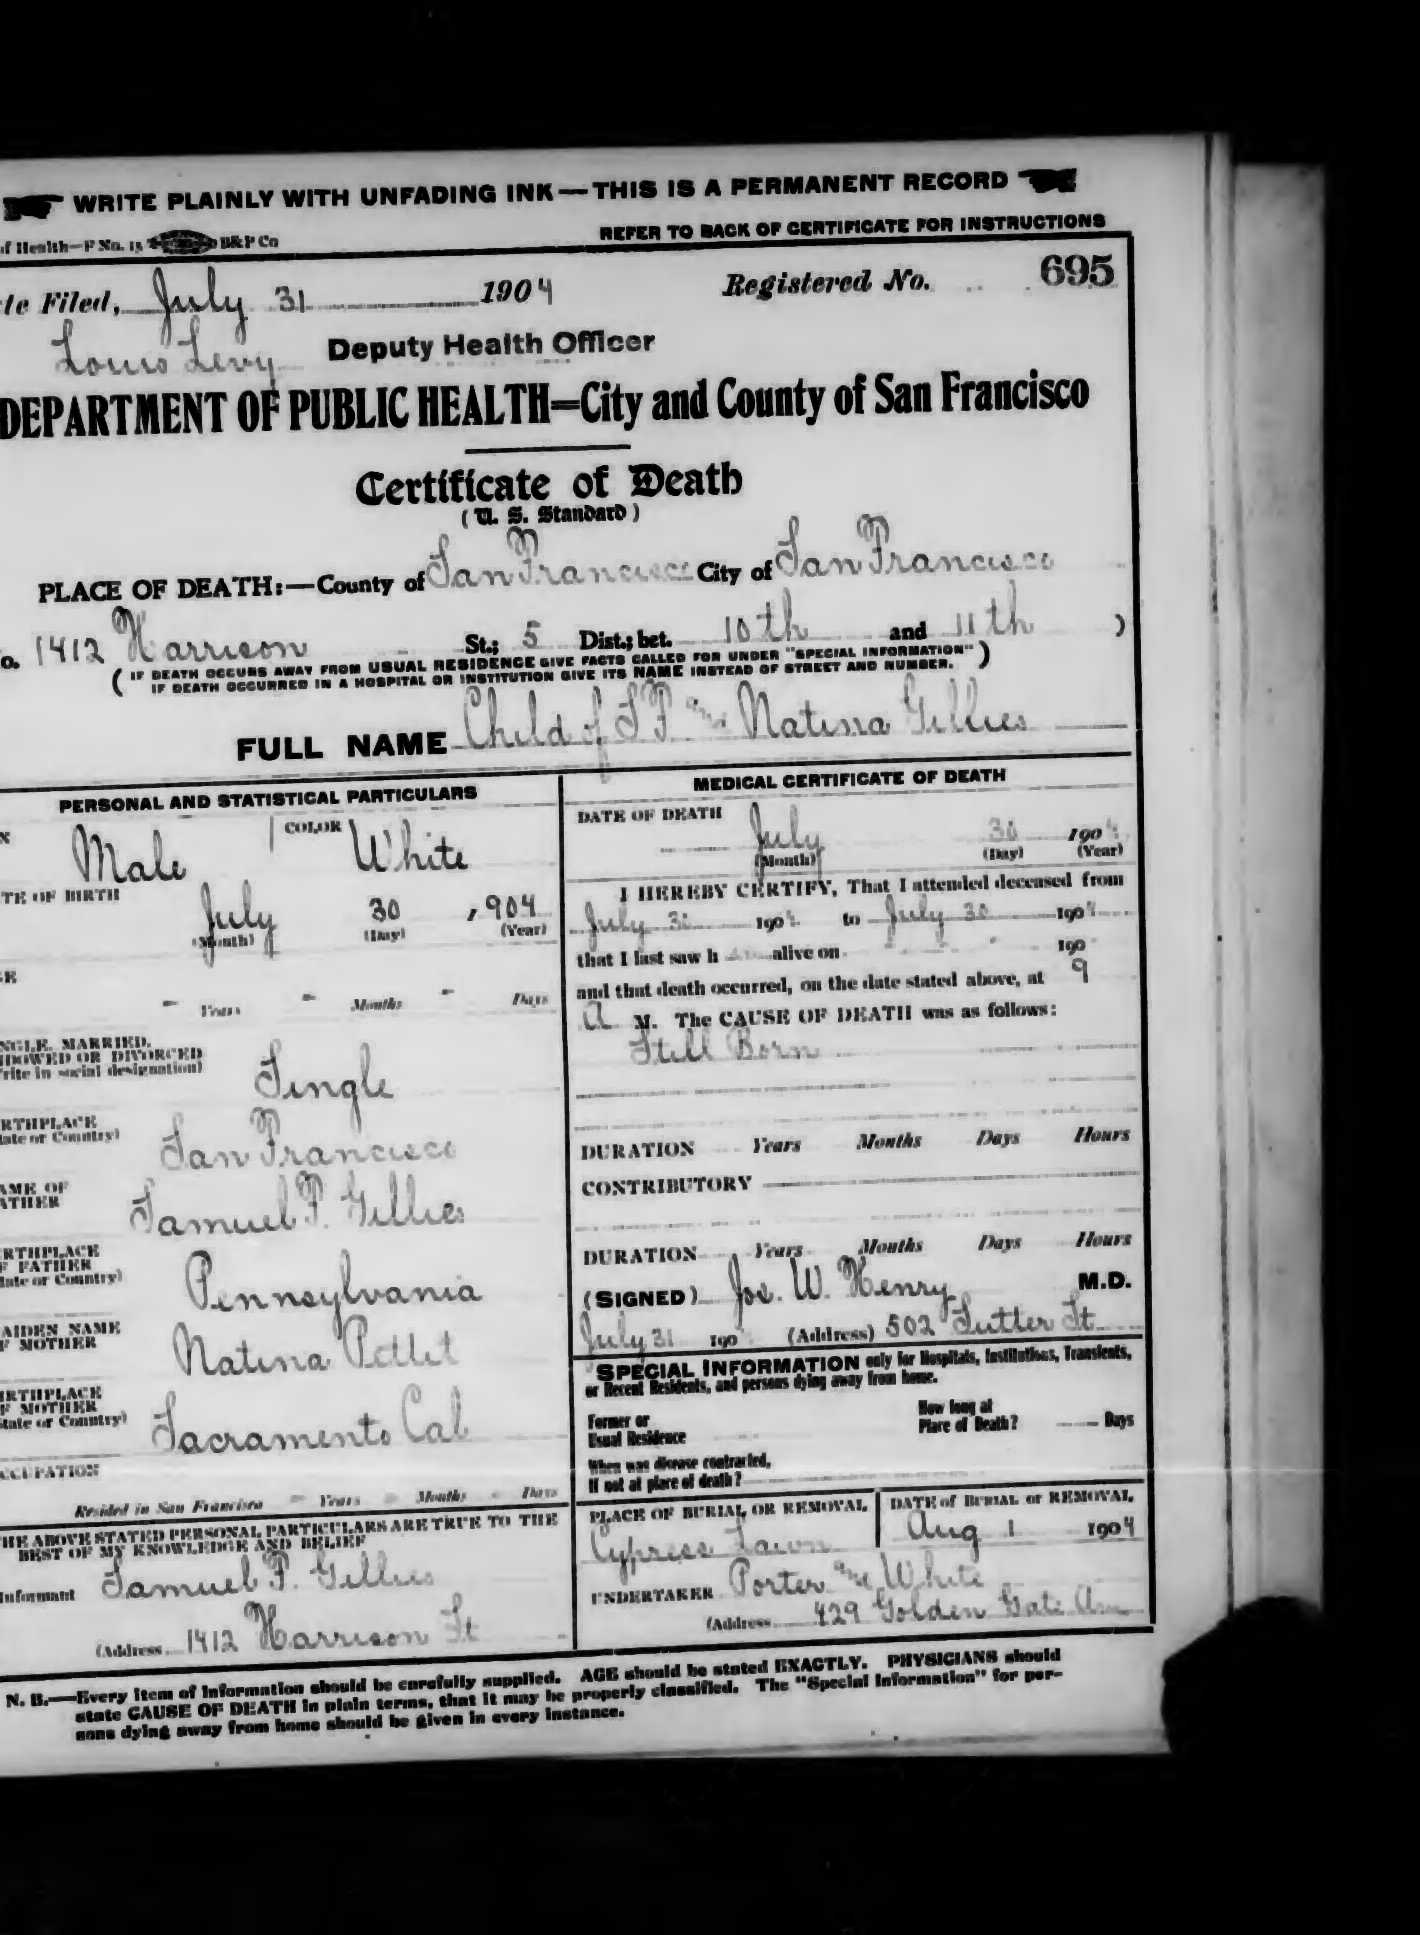 WRITE PLAINLY WITH UNFADING INK—THIS IS A PERMANENT RECORD
of Health—F No. 15 B&P Co
REFER TO BACK OF CERTIFICATE FOR INSTRUCTIONS
te Filed, July 31 1904 Registered No. 695
Louis Levy Deputy Health Officer
DEPARTMENT OF PUBLIC HEALTH=City and County of San Francisco
Certificate of Death
(U. S. Standard)
PLACE OF DEATH:—County of San Francisco City of San Francisco
o. 1412 Harrison St.; 5 Dist.; bet. 10th and 11th )
( IF DEATH OCCURS AWAY FROM USUAL RESIDENCE GIVE FACTS CALLED FOR UNDER "SPECIAL INFORMATION" )
IF DEATH OCCURRED IN A HOSPITAL OR INSTITUTION GIVE ITS NAME INSTEAD OF STREET AND NUMBER.
FULL NAME Child of S P and Natina Gillies
PERSONAL AND STATISTICAL PARTICULARS
X Male COLOR White
TE OF BIRTH
July 30 , 904
(Month) (Day) (Year)
GE
- Years - Months - Days
NGLE, MARRIED,
IDOWED OR DIVORCED
rite in social designation)
Single
RTHPLACE
tate or Country)
San Francisco
AME OF
ATHER
Samuel P. Gillies
IRTHPLACE
F FATHER
tate or Country)
Pennsylvania
AIDEN NAME
F MOTHER
Natina Pettit
IRTHPLACE
F MOTHER
tate or Country)
Sacramento Cal
CCUPATION
Resided in San Francisco - Years - Months - Days
HE ABOVE STATED PERSONAL PARTICULARS ARE TRUE TO THE
BEST OF MY KNOWLEDGE AND BELIEF
Informant Samuel P. Gillies
(Address 1412 Harrison St
MEDICAL CERTIFICATE OF DEATH
DATE OF DEATH
July 30 1904
(Month) (Day) (Year)
I HEREBY CERTIFY, That I attended deceased from
July 30 1904 to July 30 1904
that I last saw h alive on 190
and that death occurred, on the date stated above, at 9
A M. The CAUSE OF DEATH was as follows:
Still Born
DURATION Years Months Days Hours
CONTRIBUTORY
DURATION Years Months Days Hours
(SIGNED) Jos. W. Henry M.D.
July 31 190 (Address) 502 Sutter St
SPECIAL INFORMATION only for Hospitals, Institutions, Transients,
or Recent Residents, and persons dying away from home.
Former or
Usual Residence
How long at
Place of Death? Days
When was disease contracted,
If not at place of death?
PLACE OF BURIAL OR REMOVAL
Cypress Lawn
DATE of BURIAL or REMOVAL
Aug 1 1904
UNDERTAKER Porter and White
(Address 429 Golden Gate Ave
N. B.—Every item of information should be carefully supplied. AGE should be stated EXACTLY. PHYSICIANS should
state CAUSE OF DEATH in plain terms, that it may be properly classified. The "Special Information" for per-
sons dying away from home should be given in every instance.